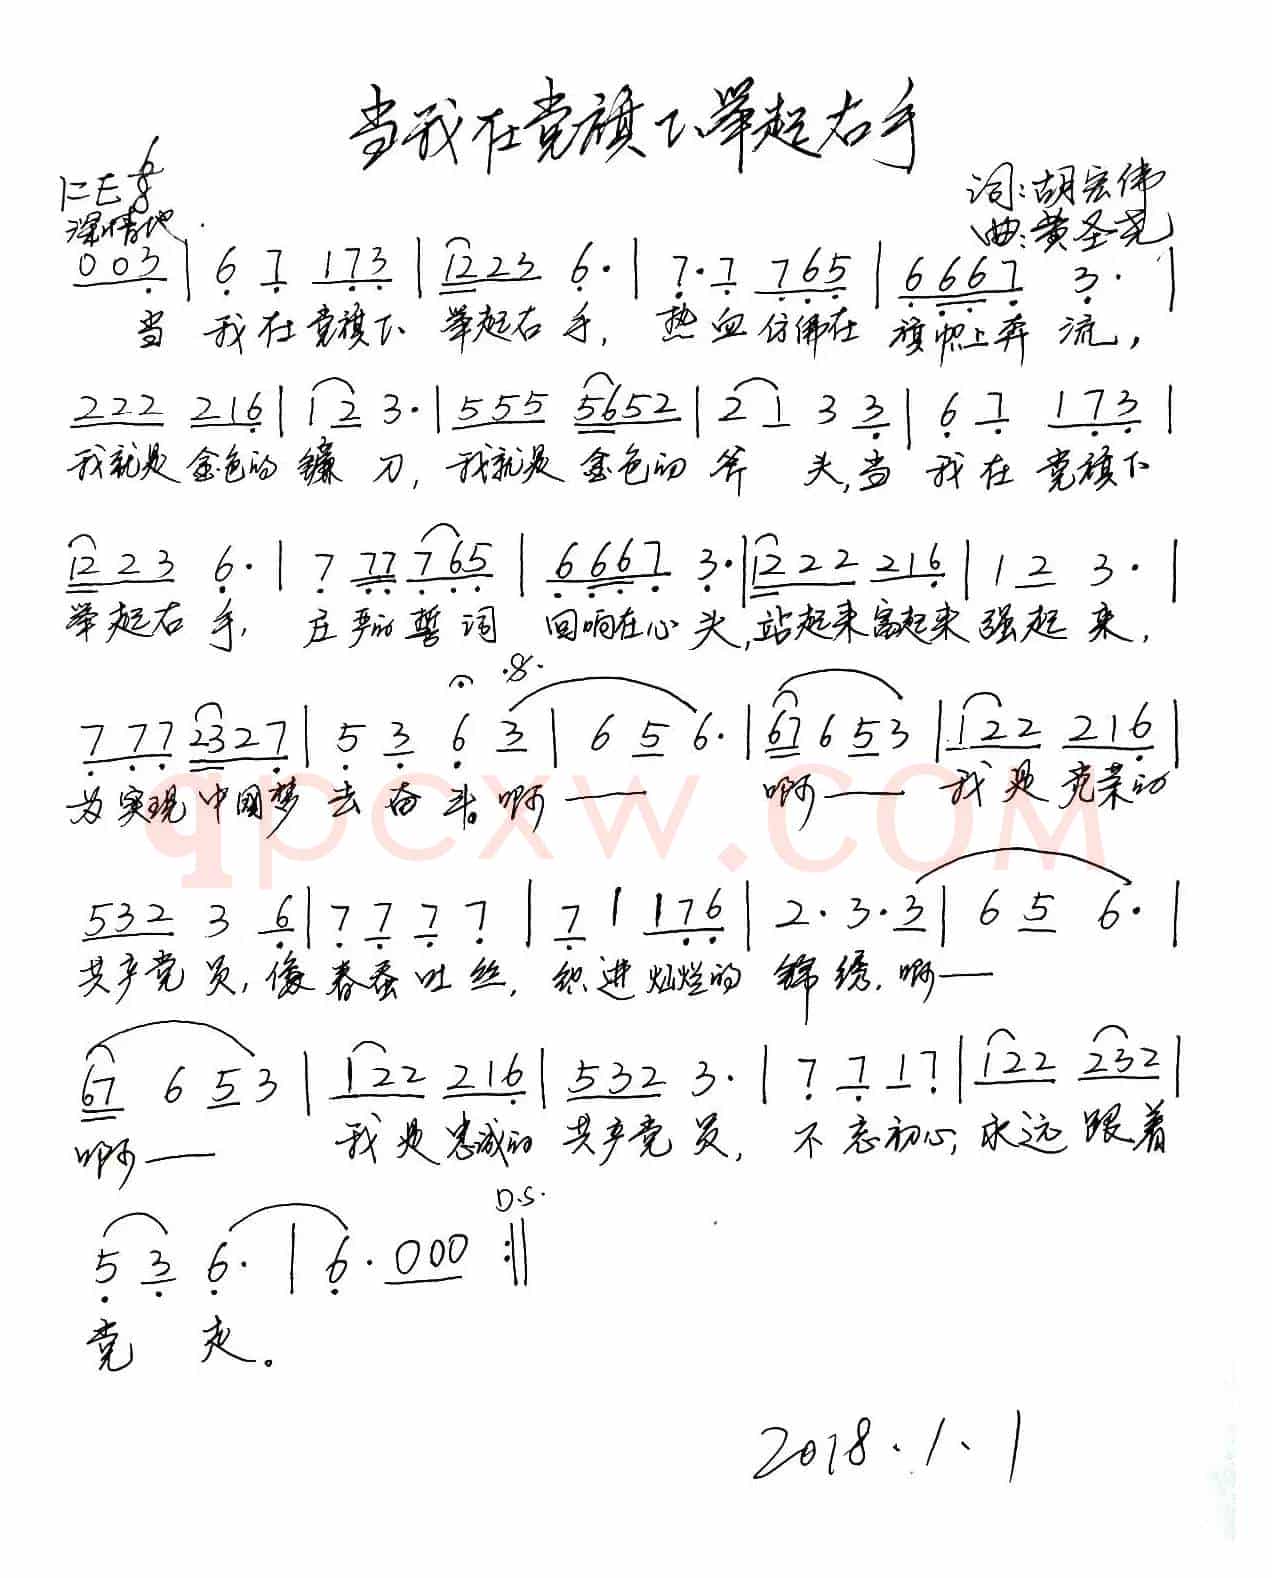 当我在党旗下举起右手
1=E 6/8
词:胡宏伟
深情地
曲:黄圣尧
003 | 6 7 173 | 1223 6· | 7·7 765 | 6667 3· |
当 我在党旗下 举起右手, 热血仿佛在 旗帜上奔流,
222 216 | 12 3· | 555 5652 | 21 3 3 | 6 7 173 |
我就是 金色的 镰刀, 我就是 金色的 斧头,当 我在 党旗下
1223 6· | 7 77 765 | 6667 3· | 1222 216 | 12 3· |
举起右手, 庄严的誓词 回响在心头,站起来富起来 强起来,
D.S.
7 77 2327 | 5 3 6 3 | 6 5 6· | 67 6 5 3 | 122 216 |
为实现 中国梦 去奋斗。啊—— 啊—— 我是光荣的
qpcxw.com
532 3 6 | 7 7 7 7 | 7 1 176 | 2·3·3 | 6 5 6· |
共产党员,像春蚕吐丝, 织进灿烂的 锦绣.啊——
67 6 5 3 | 122 216 | 532 3· | 7 7 17 | 122 232 |
啊—— 我是忠诚的 共产党员, 不忘初心,永远跟着
5 3 6· | 6· 000 :||
党走。
2018.1.1